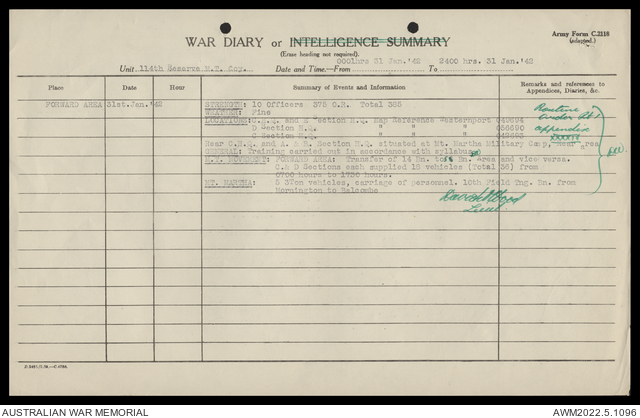 WAR DIARY or INTELLIGENCE SUMMARY
Army Form C.2118
(adapted.)
(Erase heading not required).
0001hrs 31 Jan. '42 2400 hrs. 31 Jan. '42
Unit 114th Reserve M.T. Coy. Date and Time—From To
Place Date Hour Summary of Events and Information Remarks and references to
Appendices, Diaries, &c.
FORWARD AREA 31st.Jan.'42 STRENGTH: 10 Officers 375 O.R. Total 385
WEATHER: Fine
LOCATIONS: C.H.Q. and A Section H.Q. Map Reference Westernport 049694
D Section H.Q. " " " 056690
C Section H.Q. " " "
Rear C.H.Q. and A. & B. Section H.Q. situated at Mt. Martha Military Camp, Rear Area
GENERAL: Training carried out in accordance with syllabus
M.T. MOVEMENT: FORWARD AREA: Transfer of 14 Bn. to Bn. area and vice versa.
C. & D Sections each supplied 18 vehicles (Total 36) from
0700 hours to 1730 hours.
MT. MARTHA: 5 3Ton vehicles, carriage of personnel. 10th Field Tng. Bn. from
Mornington to Balcombe
Routine
order
appendix
Lieut.
AUSTRALIAN WAR MEMORIAL AWM2022.5.1096